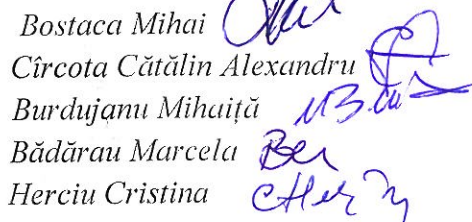 Bostaca Mihai
Cîrcota Cătălin Alexandru
Burdujanu Mihaiță
Bădărau Marcela
Herciu Cristina